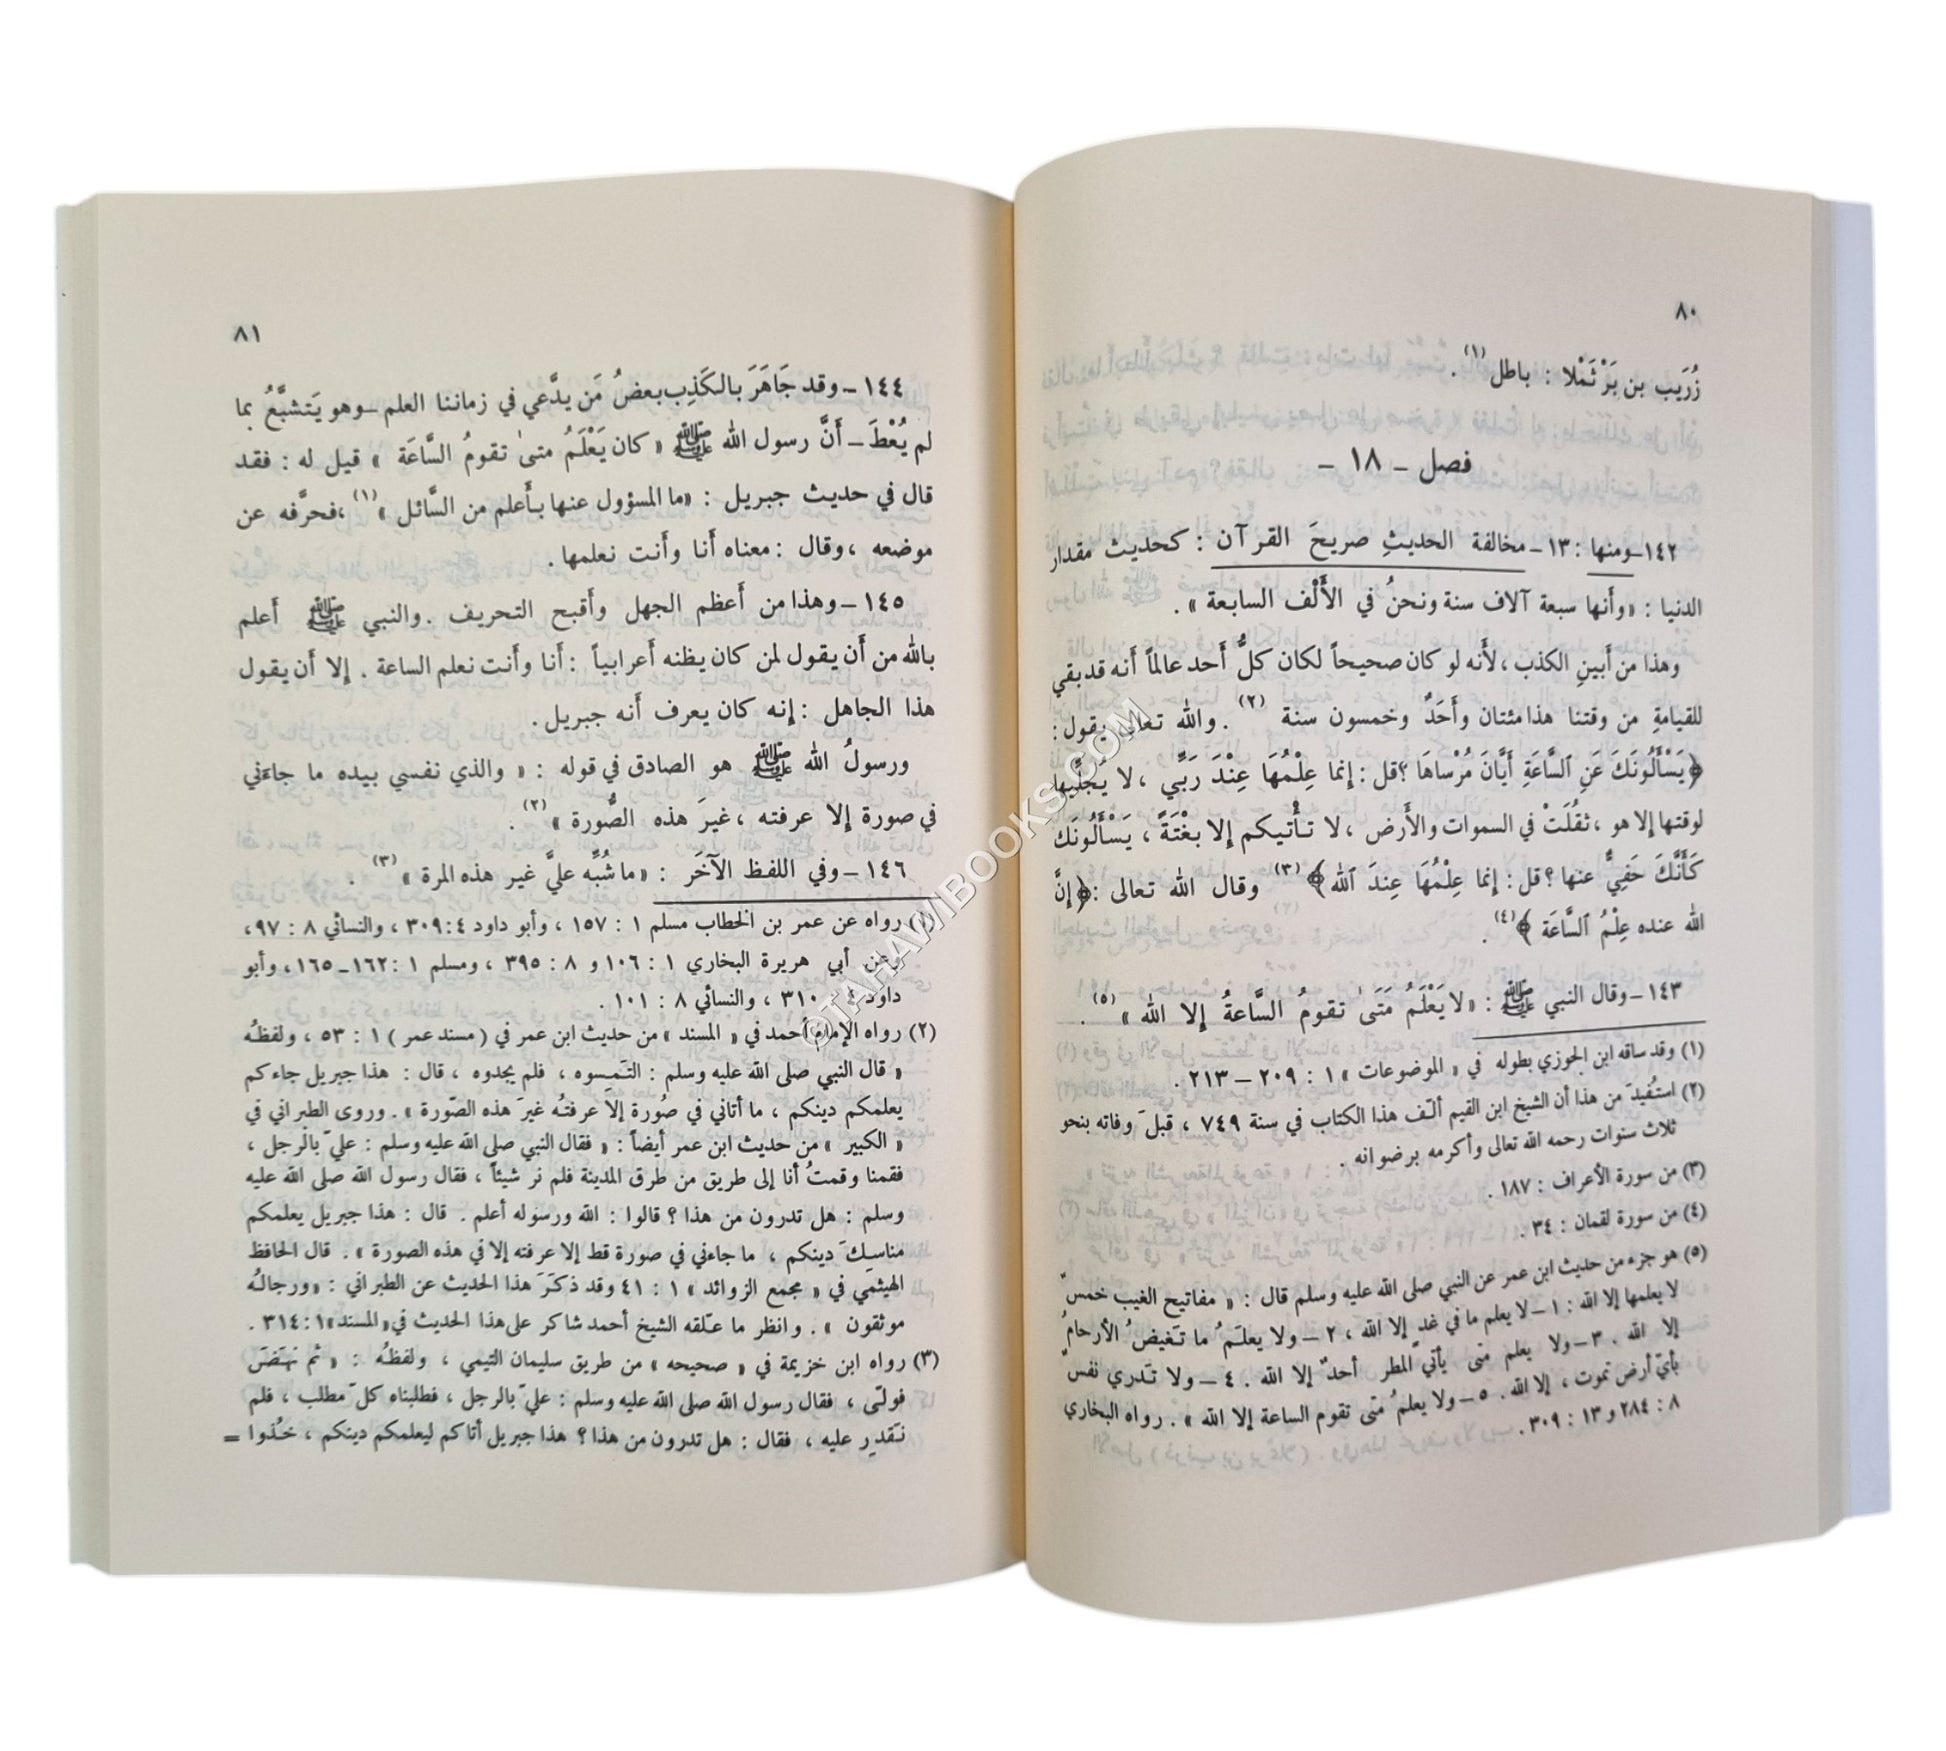 ٨٠
زُرَيب بن بَرْثَمْلا : باطل (١) .
فصل ـ ١٨ ـ
١٤٢ـ ومنها : ١٣ـ مخالفة الحديثِ صريحَ القرآن : كحديث مقدار
الدنيا : « وأَنها سبعة آلاف سنة ونحنُ في الأَلْف السابعة » .
وهذا من أَبينِ الكذب ، لأَنه لو كان صحيحاً لكان كلُّ أَحد عالماً أَنه قد بقي
للقيامةِ من وقتنا هذا مئتان وأَحَدٌ وخمسون سنة (٢) . والله تعالى يقول :
﴿ يَسْأَلُونَكَ عَنِ ٱلسَّاعَةِ أَيَّانَ مُرْسَاهَا ؟ قل : إنما عِلْمُهَا عِنْدَ رَبِّي ، لا يُجَلِّيها
لوقتها إلا هو ، ثقُلَتْ في السموات والأَرض ، لا تأْتيكم إلا بغْتَةً ، يَسْأَلُونَكَ
كَأَنَّكَ حَفِيٌّ عنها ؟ قل : إنما عِلْمُهَا عِندَ ٱلله ﴾ (٣) وقال الله تعالى : ﴿ إنَّ
الله عنده عِلْمُ ٱلسَّاعَة ﴾ (٤) .
١٤٣ـ وقال النبي ﷺ : « لا يَعْلَمُ مَتَىٰ تقومُ السَّاعةُ إلا الله » (٥) .
(١) وقد ساقه ابن الجوزي بطوله في « الموضوعات » ١ : ٢٠٩ ـ ٢١٣ .
(٢) استُفيدَ من هذا أن الشيخ ابن القيم ألّف هذا الكتاب في سنة ٧٤٩ ، قبلَ وفاته بنحو
ثلاث سنوات رحمه الله تعالى وأكرمه برضوانه .
(٣) من سورة الأعراف : ١٨٧ .
(٤) من سورة لقمان : ٣٤ .
(٥) هو جزء من حديث ابن عمر عن النبي صلى الله عليه وسلم قال : « مفاتيح الغيب خمسٌ
لا يعلمها إلا الله : ١ ـ لا يعلم ما في غد إلا الله ، ٢ ـ ولا يعلَمُ ما تَغيضُ الأرحامُ
إلا الله . ٣ ـ ولا يعلم متى يأتي المطر أحدٌ إلا الله . ٤ ـ ولا تَدري نفسٌ
بأيّ أرض تموت ، إلا الله . ٥ ـ ولا يعلمُ متى تقوم الساعة إلا الله » . رواه البخاري
٨ : ٢٨٤ و ١٣ : ٣٠٩ .
٨١
١٤٤ـ وقد جَاهَرَ بالكَذِب بعضُ مَن يدَّعي في زماننا العلم ـ وهو يَتشبَّعُ بما
لم يُعْطَ ـ أَنَّ رسول الله ﷺ « كان يَعْلَمُ متىٰ تقومُ السَّاعَة » قيل له : فقد
قال في حديث جبريل : « ما المسؤول عنها بأَعلم من السَّائل » (١) ، فحرَّفه عن
موضعه ، وقال : معناه أَنا وأَنت نعلمها .
١٤٥ـ وهذا من أَعظم الجهل وأَقبح التحريف . والنبي ﷺ أَعلم
بالله من أَن يقول لمن كان يظنه أَعرابياً : أَنا وأَنت نعلم الساعة . إلا أَن يقول
هذا الجاهل : إنه كان يعرف أَنه جبريل .
ورسولُ الله ﷺ هو الصادق في قوله : « والذي نفسي بيده ما جاءَني
في صورة إلا عرفته ، غيرَ هذه الصُّورة » (٢) .
١٤٦ـ وفي اللفظ الآخَر : « ما شُبِّه عليَّ غير هذه المرة » (٣) .
(١) رواه عن عمر بن الخطاب مسلم ١ : ١٥٧ ، وأبو داود ٤ : ٣٠٩ ، والنسائي ٨ : ٩٧ ،
وعن أبي هريرة البخاري ١ : ١٠٦ و ٨ : ٣٩٥ ، ومسلم ١ : ١٦٢ ـ ١٦٥ ، وأبو
داود ٤ : ٣١٠ ، والنسائي ٨ : ١٠١ .
(٢) رواه الإمام أحمد في « المسند » من حديث ابن عمر في ( مسند عمر ) ١ : ٥٣ ، ولفظُه
« قال النبي صلى الله عليه وسلم : التَمِسوه ، فلم يجدوه ، قال : هذا جبريل جاءكم
يعلمكم دينكم ، ما أتاني في صُورة إلا عرفتُه غيرَ هذه الصّورة » . وروى الطبراني في
« الكبير » من حديث ابن عمر أيضاً : « فقال النبي صلى الله عليه وسلم : عليّ بالرجل ،
فقمنا وقمتُ أنا إلى طريق من طرق المدينة فلم نر شيئاً ، فقال رسول الله صلى الله عليه
وسلم : هل تدرون من هذا ؟ قالوا : الله ورسوله أعلم . قال : هذا جبريل يعلمكم
مناسكَ دينكم ، ما جاءني في صورة قط إلا عرفته إلا في هذه الصورة » . قال الحافظ
الهيثمي في « مجمع الزوائد » ١ : ٤١ وقد ذكَرَ هذا الحديث عن الطبراني : « ورجالُه
موثقون » . وانظر ما علّقه الشيخ أحمد شاكر على هذا الحديث في « المسند » ١ : ٣١٤ .
(٣) رواه ابن خزيمة في « صحيحه » من طريق سليمان التيمي ، ولفظُه : « ثم نهَضَ
فولّى ، فقال رسول الله صلى الله عليه وسلم : عليّ بالرجل ، فطلبناه كلّ مطلب ، فلم
نَقدِر عليه ، فقال : هل تدرون من هذا ؟ هذا جبريل أتاكم ليعلمكم دينكم ، خُذوا =
©TAHAWIBOOKS.COM